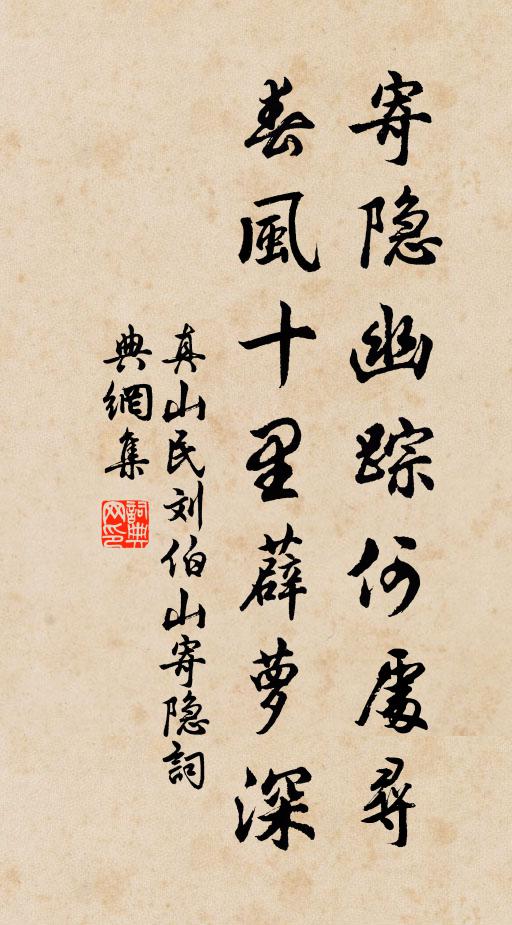 寄隐幽踪何處尋
春風十里薜萝深
真山民刘伯山寄隐詞
典網集
詞典
网印